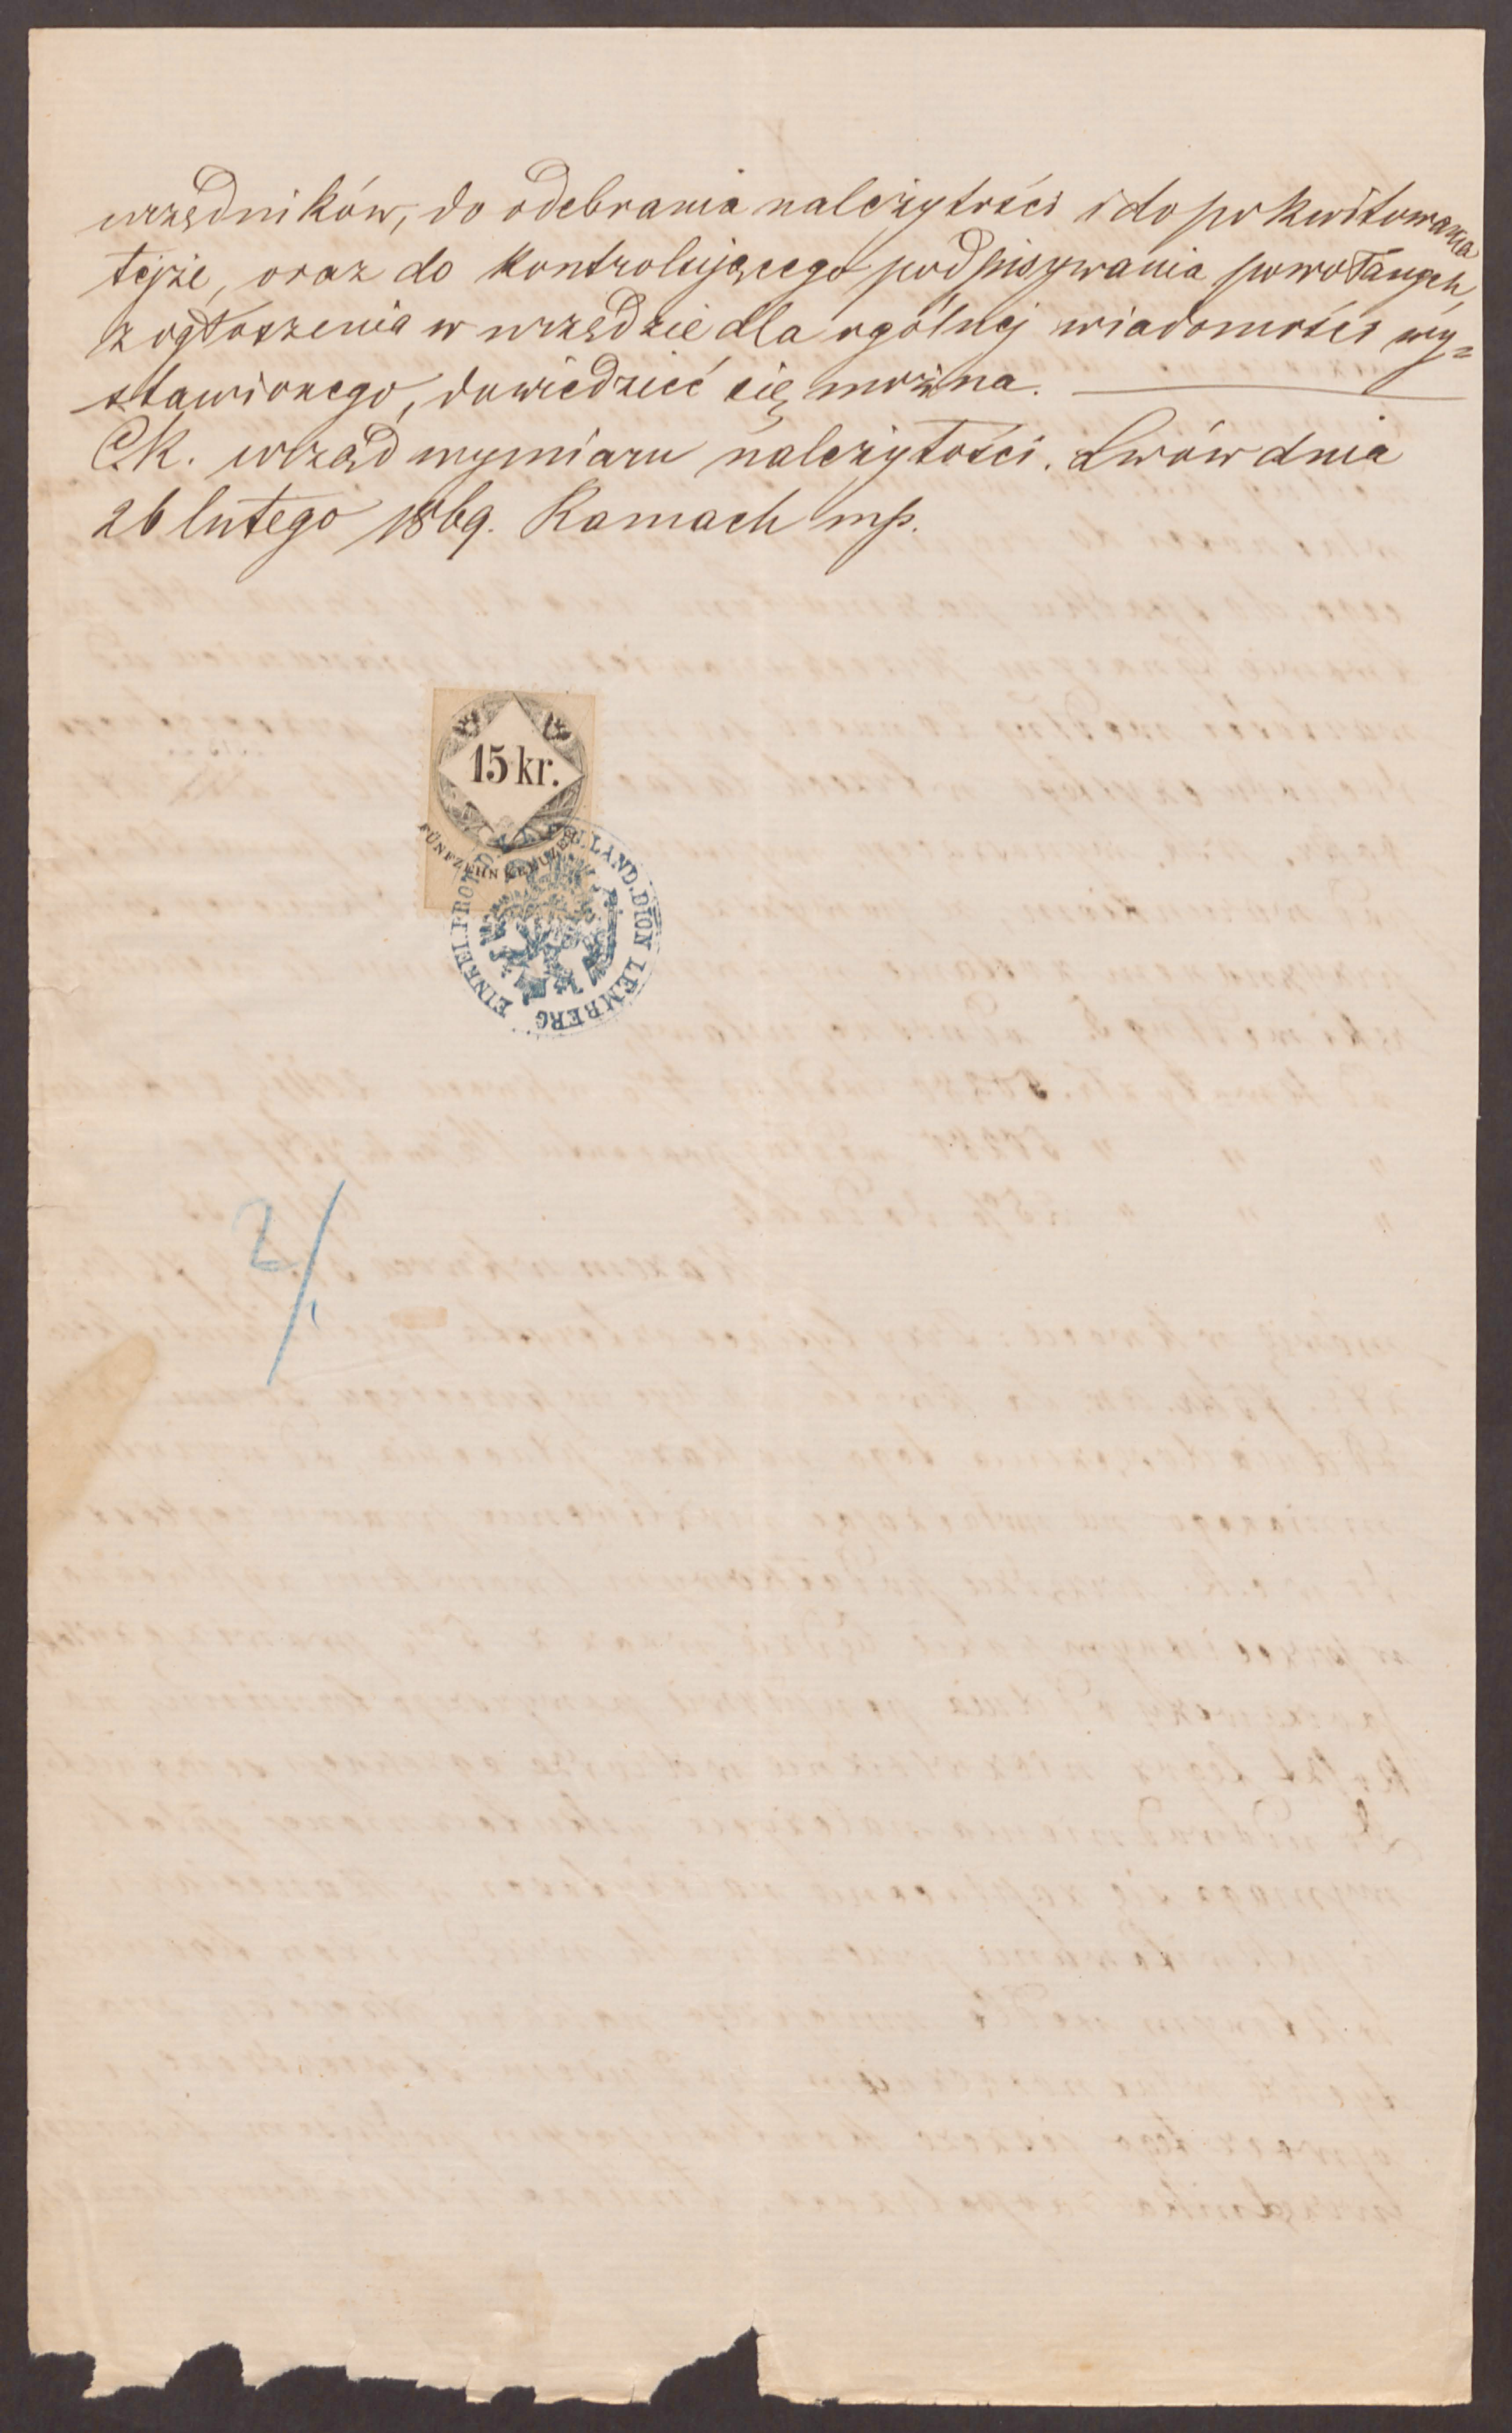 urzędników, do odebrania należytości i do pokwitowania
tejże, oraz do kontrolującego podpisywania powołanych,
z ogłoszenia w urzędzie dla ogólnej wiadomości wy=
stawionego, dowiedzieć się można.
C.K. urząd wymiaru należytości. Lwów dnia
26 lutego 1869. Ramach mp.
15 kr.
FÜNFZEHN KREUZER
EINREI. PROT. LAND. DION LEMBERG
2/.